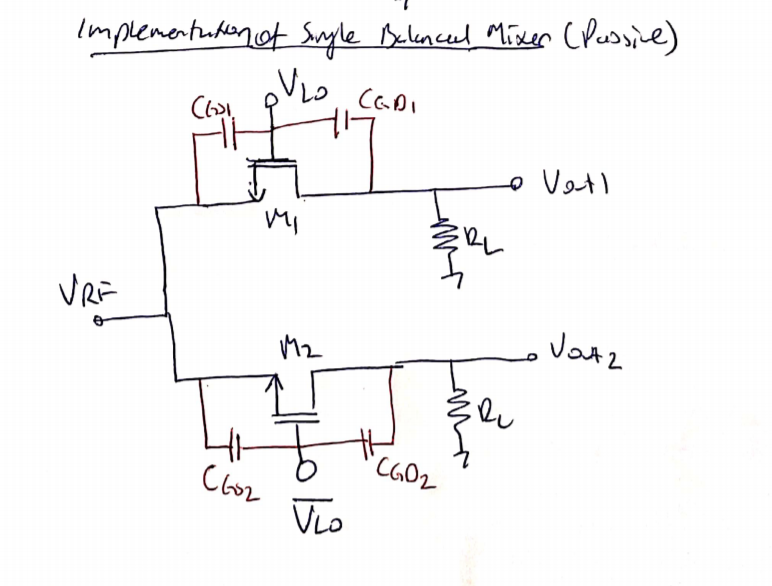 Implementation of Single Balanced Mixer (Passive)
VLO
CGS1
CGD1
M1
Vout1
RL
VRF
M2
Vout2
RL
CGS2
CGD2
V̅L̅O̅